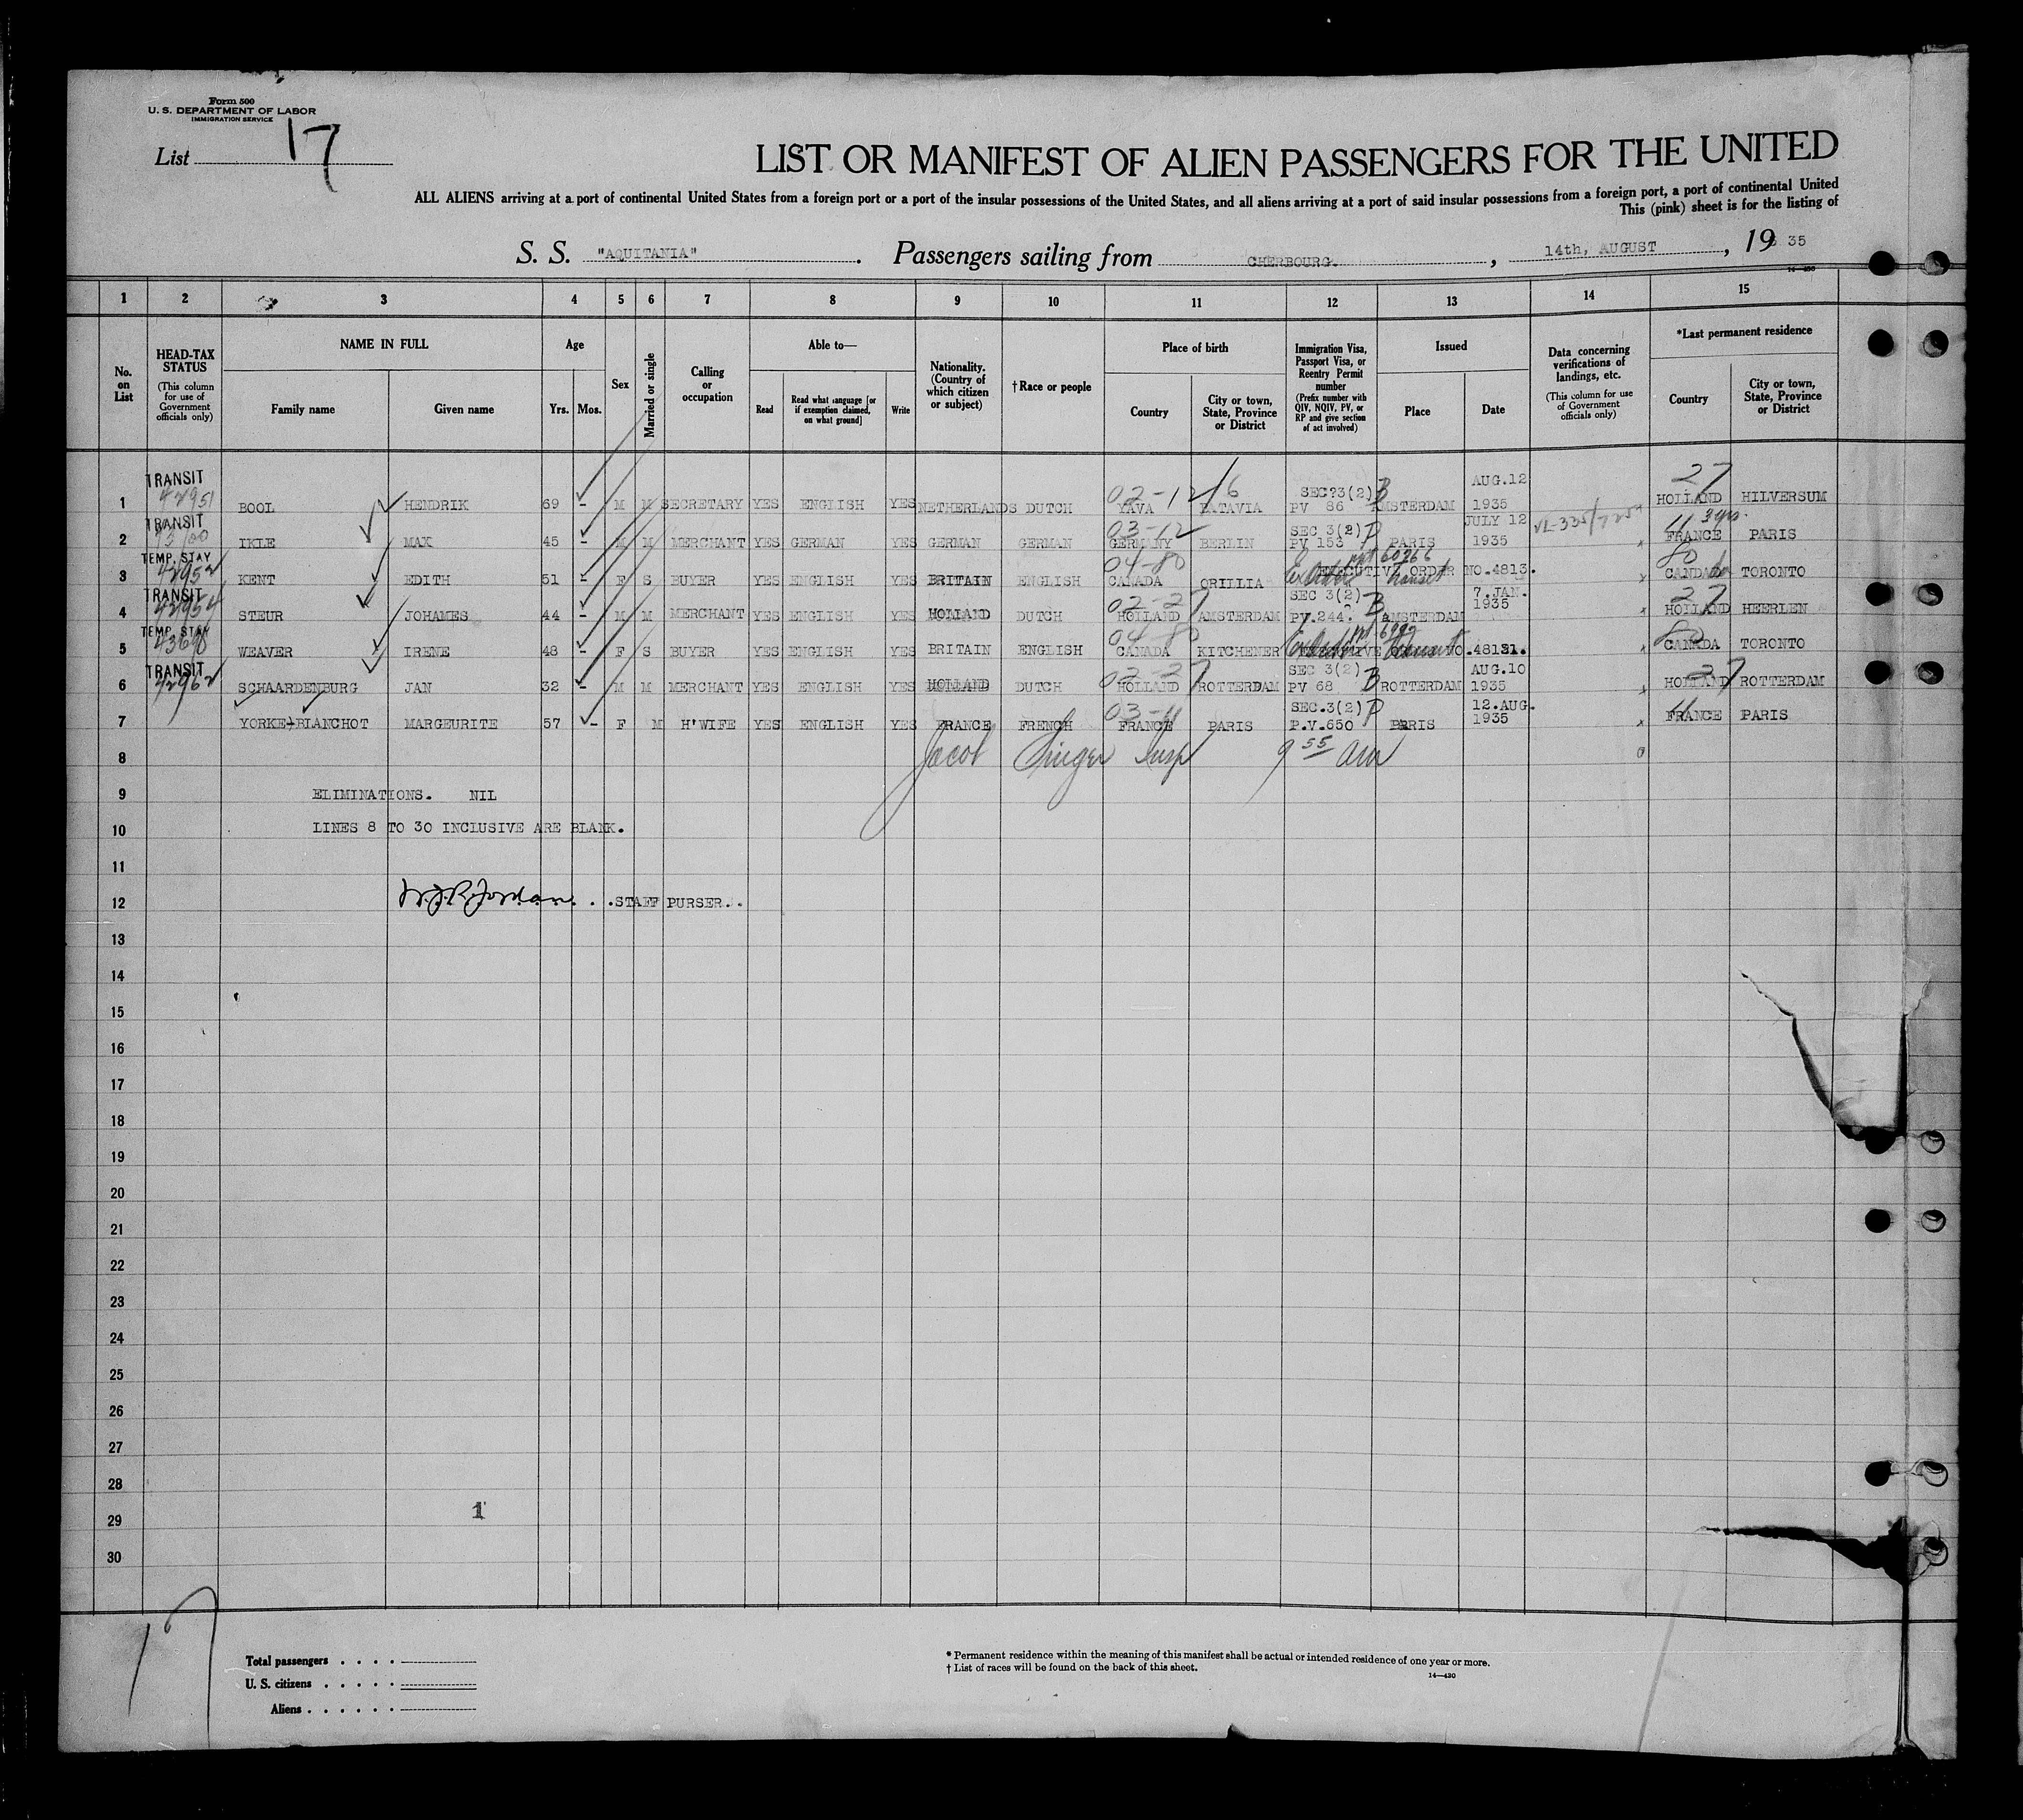 Form 500
U. S. DEPARTMENT OF LABOR
IMMIGRATION SERVICE
List 17
LIST OR MANIFEST OF ALIEN PASSENGERS FOR THE UNITED
ALL ALIENS arriving at a port of continental United States from a foreign port or a port of the insular possessions of the United States, and all aliens arriving at a port of said insular possessions from a foreign port, a port of continental United
This (pink) sheet is for the listing of
S. S. "AQUITANIA". Passengers sailing from CHERBOURG., 14th, AUGUST, 19 35
14—430
1 2 3 4 5 6 7 8 9 10 11 12 13 14 15
No. on List
HEAD-TAX STATUS (This column for use of Government officials only)
NAME IN FULL
Family name
Given name
Age
Yrs.
Mos.
Sex
Married or single
Calling or occupation
Able to—
Read
Read what language [or if exemption claimed, on what ground]
Write
Nationality. (Country of which citizen or subject)
†Race or people
Place of birth
Country
City or town, State, Province or District
Immigration Visa, Passport Visa, or Reentry Permit number (Prefix number with QIV, NQIV, PV, or RP and give section of act involved)
Issued
Place
Date
Data concerning verifications of landings, etc. (This column for use of Government officials only)
*Last permanent residence
Country
City or town, State, Province or District
1 TRANSIT 42951 BOOL HENDRIK 69 - M M SECRETARY YES ENGLISH YES NETHERLANDS DUTCH 02-12/6 YAVA BATAVIA SEC?3(2) PV 86 B AMSTERDAM AUG.12 1935 27 HOLLAND HILVERSUM
2 TRANSIT IKLE MAX 45 - M M MERCHANT YES GERMAN YES GERMAN GERMAN 03-12 GERMANY BERLIN SEC 3(2) PV 153 P PARIS JULY 12 1935 11 3 yrs. FRANCE PARIS
3 TEMP. STAY 42952 KENT EDITH 51 - F S BUYER YES ENGLISH YES BRITAIN ENGLISH 04-80 CANADA ORILLIA EXECUTIVE ORDER NO.4813. 80 CANADA TORONTO
4 TRANSIT 42954 STEUR JOHAMES 44 - M M MERCHANT YES ENGLISH YES HOLLAND DUTCH 02-27 HOLLAND AMSTERDAM SEC 3(2) PV.244. B AMSTERDAM 7.JAN. 1935 27 HOLLAND HEERLEN
5 TEMP. STAY WEAVER IRENE 48 - F S BUYER YES ENGLISH YES BRITAIN ENGLISH 04-80 CANADA KITCHENER 80 CANADA TORONTO
6 TRANSIT 42962 SCHAARDENBURG JAN 32 - M M MERCHANT YES ENGLISH YES HOLLAND DUTCH 02-27 HOLLAND ROTTERDAM SEC 3(2) PV 68 B ROTTERDAM AUG.10 1935 27 HOLLAND ROTTERDAM
7 YORKE-BLANCHOT MARGEURITE 57 - F M H'WIFE YES ENGLISH YES FRANCE FRENCH 03-11 FRANCE PARIS SEC.3(2) P.V.650 P PARIS 12.AUG. 1935 11 FRANCE PARIS
8 Jacob Singer Insp 9 55 am
9 ELIMINATIONS. NIL
10 LINES 8 TO 30 INCLUSIVE ARE BLANK.
11
12 . . .STAFF PURSER. .
13
14
15
16
17
18
19
20
21
22
23
24
25
26
27
28
1
29
30
17
Total passengers . . . .
U. S. citizens . . . . .
Aliens . . . . . .
* Permanent residence within the meaning of this manifest shall be actual or intended residence of one year or more.
† List of races will be found on the back of this sheet.
14—430